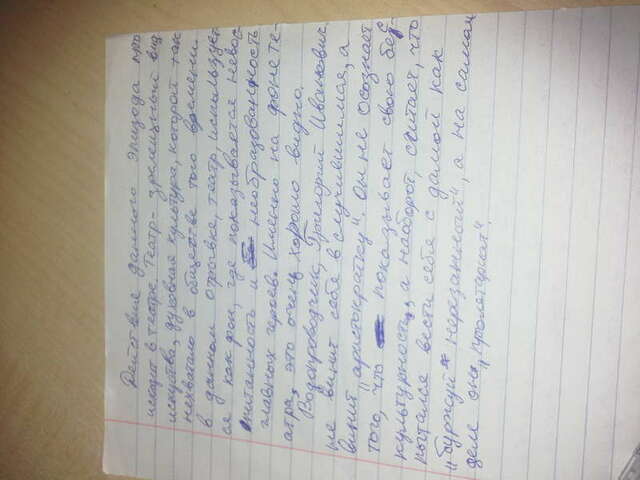 Действия данного эпизода про
исходят в театре. Театр- зрелищный вид
искуства, духовная культура, которой так
нехватало в обществе того времени.
в данном отрывке, театр, используетс
ся как фон, где показывается невос-
питанность и необразованность
главных героев. Именно на фоне те-
атра, это очень хорошо видно.
Водопроводчик, Григорий Иванович.
не винит себя в случившимся, а
винит „аристократку". Он не осознает
того, что показывает свою бес
культурность, а наоборот, считает, что
пытался вести себя с дамой как
„буржуй нерезанный", а на самом
деле он „пролетариат".